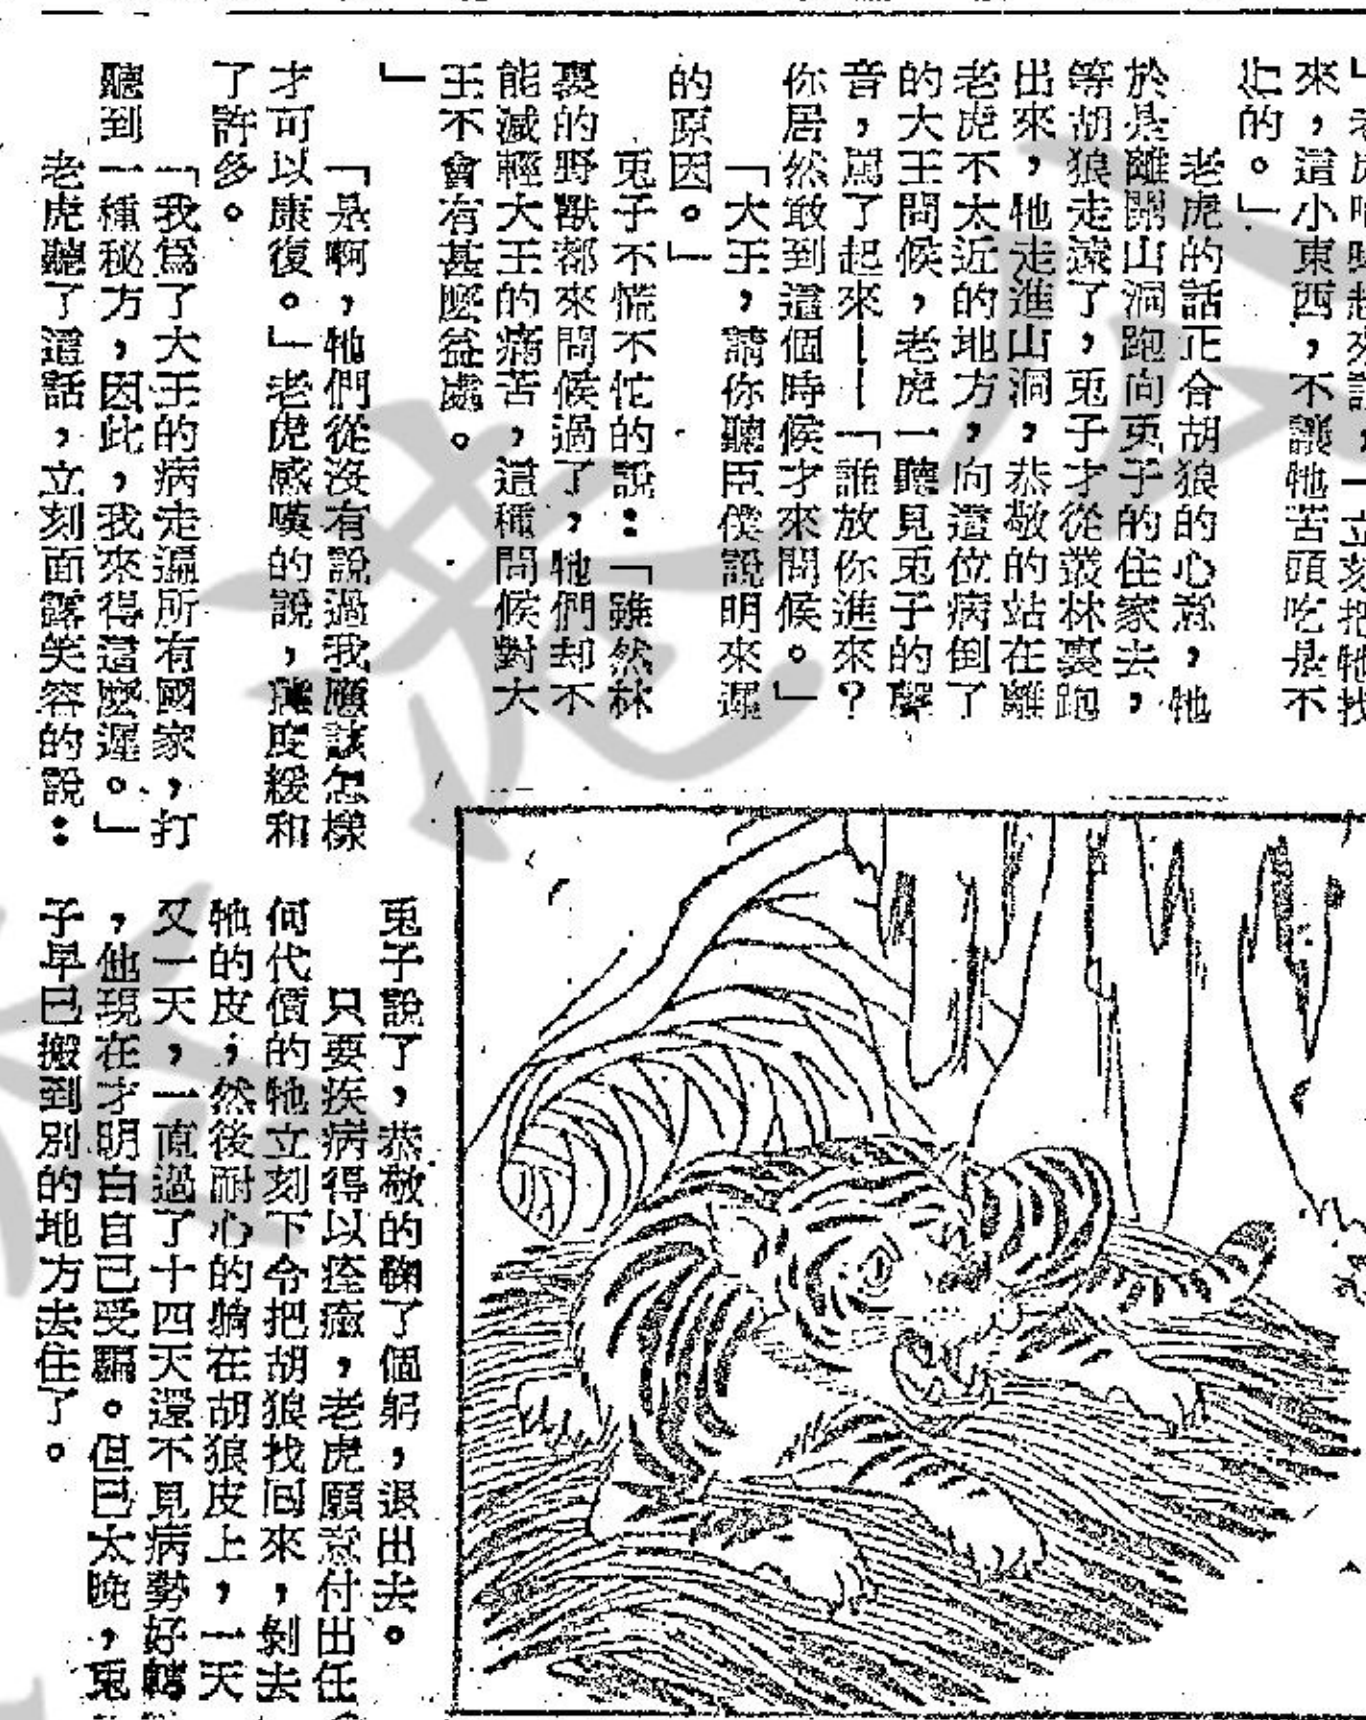 來，這小東西，不讓牠苦頭吃是不
止的。」
老虎的話正合胡狼的心意，牠
於是離開山洞跑向兎子的住家去，
等胡狼走遠了，兎子才從叢林裏跑
出來，牠走進山洞，恭敬的站在離
老虎不太近的地方，向這位病倒了
的大王問候，老虎一聽見兎子的聲
音，罵了起來——「誰放你進來？
你居然敢到這個時候才來問候。」
「大王，請你聽臣僕說明來遲
的原因。」
兎子不慌不忙的說：「雖然林
裏的野獸都來問候過了，牠們却不
能減輕大王的痛苦，這種問候對大
王不會有甚麽益處。
」
「是啊，牠們從沒有說過我應該怎樣
才可以康復。」老虎感嘆的說，態度緩和
了許多。
「我爲了大王的病走遍所有國家，打
聽到一種秘方，因此，我來得這麽遲。」
老虎聽了這話，立刻面露笑容的說：
兎子說了，恭敬的鞠了個躬，退出去。
只要疾病得以痊癒，老虎願意付出任
何代價的牠立刻下令把胡狼找回來，剝去
牠的皮，然後耐心的躺在胡狼皮上，一天
又一天，一直過了十四天還不見病勢好轉
，他現在才明白自己受騙。但已太晚，兎
子早已搬到別的地方去住了。